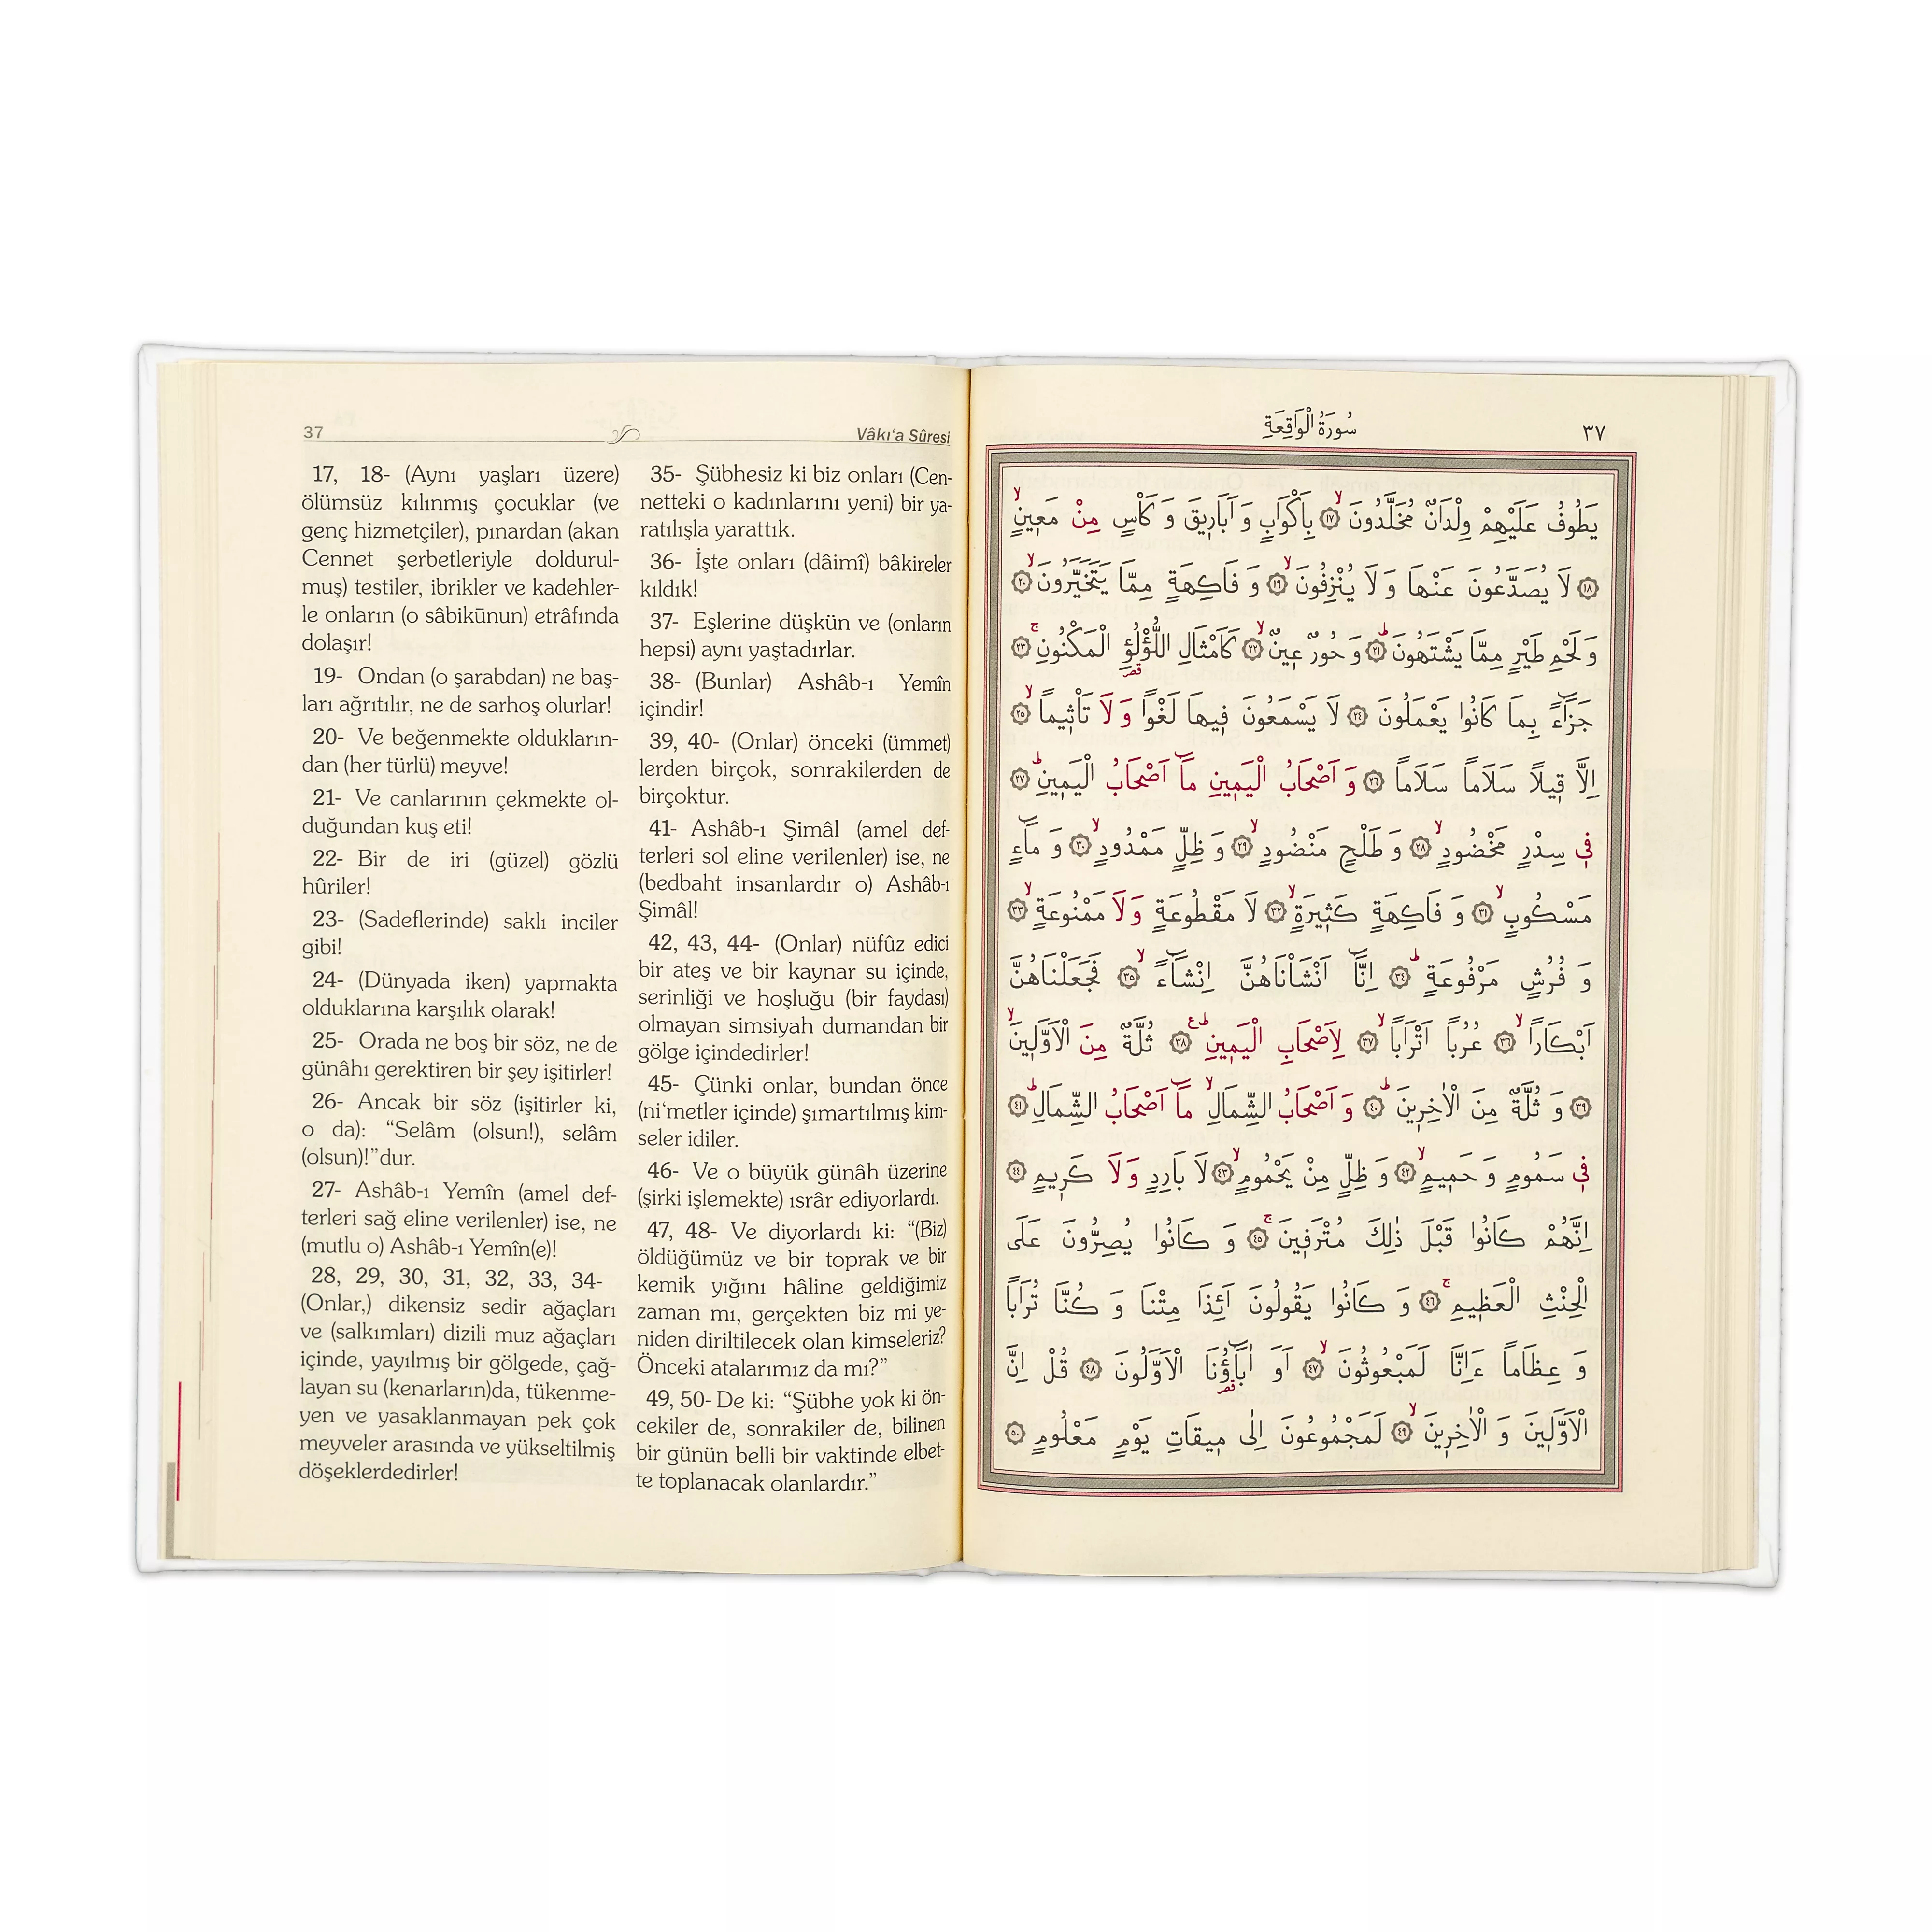 37
Vâkı‘a Sûresi
17, 18- (Aynı yaşları üzere)
ölümsüz kılınmış çocuklar (ve
genç hizmetçiler), pınardan (akan
Cennet şerbetleriyle doldurul-
muş) testiler, ibrikler ve kadehler-
le onların (o sâbikūnun) etrâfında
dolaşır!
19- Ondan (o şarabdan) ne baş-
ları ağrıtılır, ne de sarhoş olurlar!
20- Ve beğenmekte oldukların-
dan (her türlü) meyve!
21- Ve canlarının çekmekte ol-
duğundan kuş eti!
22- Bir de iri (güzel) gözlü
hûriler!
23- (Sadeflerinde) saklı inciler
gibi!
24- (Dünyada iken) yapmakta
olduklarına karşılık olarak!
25- Orada ne boş bir söz, ne de
günâhı gerektiren bir şey işitirler!
26- Ancak bir söz (işitirler ki,
o da): “Selâm (olsun!), selâm
(olsun)!”dur.
27- Ashâb-ı Yemîn (amel def-
terleri sağ eline verilenler) ise, ne
(mutlu o) Ashâb-ı Yemîn(e)!
28, 29, 30, 31, 32, 33, 34-
(Onlar,) dikensiz sedir ağaçları
ve (salkımları) dizili muz ağaçları
içinde, yayılmış bir gölgede, çağ-
layan su (kenarların)da, tükenme-
yen ve yasaklanmayan pek çok
meyveler arasında ve yükseltilmiş
döşeklerdedirler!
35- Şübhesiz ki biz onları (Cen-
netteki o kadınlarını yeni) bir ya-
ratılışla yarattık.
36- İşte onları (dâimî) bâkireler
kıldık!
37- Eşlerine düşkün ve (onların
hepsi) aynı yaştadırlar.
38- (Bunlar) Ashâb-ı Yemîn
içindir!
39, 40- (Onlar) önceki (ümmet)
lerden birçok, sonrakilerden de
birçoktur.
41- Ashâb-ı Şimâl (amel def-
terleri sol eline verilenler) ise, ne
(bedbaht insanlardır o) Ashâb-ı
Şimâl!
42, 43, 44- (Onlar) nüfûz edici
bir ateş ve bir kaynar su içinde,
serinliği ve hoşluğu (bir faydası)
olmayan simsiyah dumandan bir
gölge içindedirler!
45- Çünki onlar, bundan önce
(ni‘metler içinde) şımartılmış kim-
seler idiler.
46- Ve o büyük günâh üzerine
(şirki işlemekte) ısrâr ediyorlardı.
47, 48- Ve diyorlardı ki: “(Biz)
öldüğümüz ve bir toprak ve bir
kemik yığını hâline geldiğimiz
zaman mı, gerçekten biz mi ye-
niden diriltilecek olan kimseleriz?
Önceki atalarımız da mı?”
49, 50- De ki: “Şübhe yok ki ön-
cekiler de, sonrakiler de, bilinen
bir günün belli bir vaktinde elbet-
te toplanacak olanlardır.”
سُورَةُ الْوَاقِعَةِ
٣٧
يَطُوفُ عَلَيْهِمْ وِلْدَانٌ مُخَلَّدُونَ ۙ ﴿١٧﴾ بِاَكْوَابٍ وَ اَبَارِيقَ وَ كَأْسٍ مِنْ مَعِينٍ ۙ
﴿١٨﴾ لَا يُصَدَّعُونَ عَنْهَا وَ لَا يُنْزِفُونَ ۙ ﴿١٩﴾ وَ فَاكِهَةٍ مِمَّا يَتَخَيَّرُونَ ۙ ﴿٢٠﴾
وَ لَحْمِ طَيْرٍ مِمَّا يَشْتَهُونَ ۜ ﴿٢١﴾ وَ حُورٌ عِينٌ ۙ ﴿٢٢﴾ كَاَمْثَالِ اللُّؤْلُؤِ الْمَكْنُونِ ۚ ﴿٢٣﴾
جَزَٓاءً بِمَا كَانُوا يَعْمَلُونَ ﴿٢٤﴾ لَا يَسْمَعُونَ فِيهَا لَغْوًا وَ لَا تَأْثِيماً ۙ ﴿٢٥﴾
اِلَّا قِيلاً سَلَاماً سَلَاماً ﴿٢٦﴾ وَ اَصْحَابُ الْيَمِينِ مَٓا اَصْحَابُ الْيَمِينِ ۜ ﴿٢٧﴾
فِي سِدْرٍ مَخْضُودٍ ۙ ﴿٢٨﴾ وَ طَلْحٍ مَنْضُودٍ ۙ ﴿٢٩﴾ وَ ظِلٍّ مَمْدُودٍ ۙ ﴿٣٠﴾ وَ مَٓاءٍ
مَسْكُوبٍ ۙ ﴿٣١﴾ وَ فَاكِهَةٍ كَثِيرَةٍ ۙ ﴿٣٢﴾ لَا مَقْطُوعَةٍ وَ لَا مَمْنُوعَةٍ ۙ ﴿٣٣﴾
وَ فُرُشٍ مَرْفُوعَةٍ ۜ ﴿٣٤﴾ اِنَّٓا اَنْشَأْنَاهُنَّ اِنْشَٓاءً ۙ ﴿٣٥﴾ فَجَعَلْنَاهُنَّ
اَبْكَاراً ۙ ﴿٣٦﴾ عُرُباً اَتْرَاباً ۙ ﴿٣٧﴾ لِاَصْحَابِ الْيَمِينِ ۜ ع ﴿٣٨﴾ ثُلَّةٌ مِنَ الْاَوَّلِينَ ۙ
﴿٣٩﴾ وَ ثُلَّةٌ مِنَ الْاٰخِرِينَ ۜ ﴿٤٠﴾ وَ اَصْحَابُ الشِّمَالِ ۙ مَٓا اَصْحَابُ الشِّمَالِ ۜ ﴿٤١﴾
فِي سَمُومٍ وَ حَمِيمٍ ۙ ﴿٤٢﴾ وَ ظِلٍّ مِنْ يَحْمُومٍ ۙ ﴿٤٣﴾ لَا بَارِدٍ وَ لَا كَرِيمٍ ﴿٤٤﴾
اِنَّهُمْ كَانُوا قَبْلَ ذٰلِكَ مُتْرَفِينَ ۚ ﴿٤٥﴾ وَ كَانُوا يُصِرُّونَ عَلَى
الْحِنْثِ الْعَظِيمِ ۚ ﴿٤٦﴾ وَ كَانُوا يَقُولُونَ اَئِذَا مِتْنَا وَ كُنَّا تُرَاباً
وَ عِظَاماً ءَاِنَّا لَمَبْعُوثُونَ ۙ ﴿٤٧﴾ اَوَ اٰبَٓاؤُنَا الْاَوَّلُونَ ﴿٤٨﴾ قُلْ اِنَّ
الْاَوَّلِينَ وَ الْاٰخِرِينَ ۙ ﴿٤٩﴾ لَمَجْمُوعُونَ اِلٰى مِيقَاتِ يَوْمٍ مَعْلُومٍ ﴿٥٠﴾